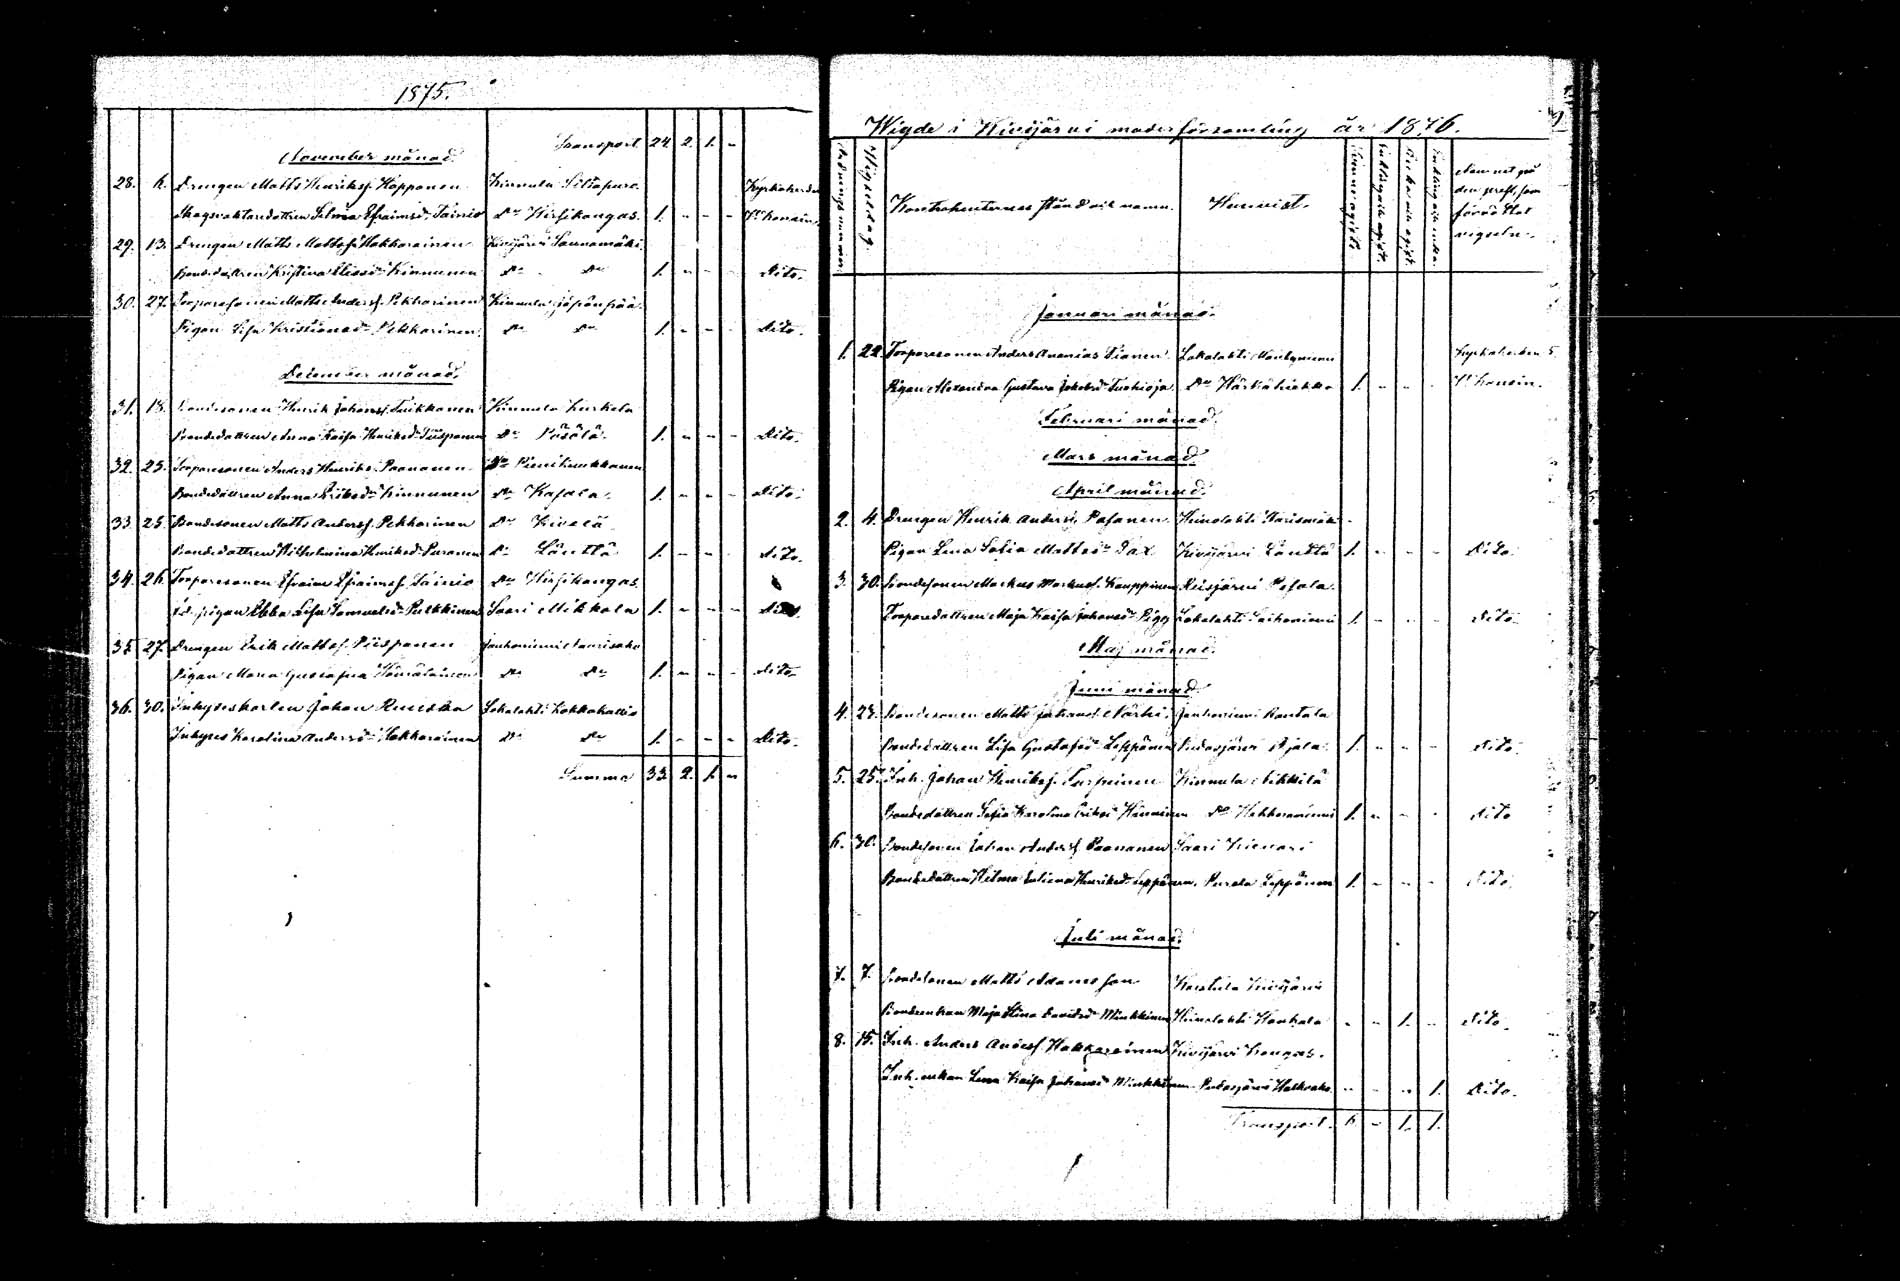 1875.
Transport 24. 2. 1. -
November månad.
28. 6. Drengen Matts Henriksſ. Kopponen Kinnula Siltapuro Kyrkoherden
Skogvaktaredottren Selma Efraimsd:r Tainio D:o Hirsikangas. 1. - - -
29. 13. Drengen Matts Mattsſ. Hakkarainen Kivijärvi Saunamäki.
Bondedottren Kristina Eliasd:r Kinnunen D:o D:o 1. - - - Dito.
30. 27. Torparesonen Matts Andersſ. Pekkarinen Kinnula Jäpänpää.
Pigan Lisa Kristiansd:r Pekkarinen. D:o D:o 1. - - - Dito.
December månad.
31. 18. Bondesonen Henrik Johansſ. Tuikkanen Kinnula Lurkela
Bondedottren Anna Kaisa Henriksd:r Piispanen D:o Pösölä. 1. - - - Dito.
32. 25. Torparesonen Anders Henriksſ. Paananen D:o Pienikuukkanen
Bondedottren Anna Eriksd:r Kinnunen D:o Kasala. 1. - - - Dito.
33. 25. Bondesonen Matts Andersſ. Pekkarinen D:o Kivelä
Bondedottren Wilhelmina Henriksd:r Puranen D:o Länttä 1. - - - Dito.
34. 26. Torparesonen Efraim Efraimsſ. Tainio D:o Hirsikangas.
pigan Ebba Lisa Samuelsd:r Pulkkinen Saari Mikkola 1. - - - Dito.
35. 27. Drengen Erik Mattsſ. Piispanen Jauhoniemi
Pigan Maria Gustafva Hämäläinen D:o D:o 1. - - - Dito.
36. 30. Inhyseskarlen Johan Ruuska Lokalahti Kokkokallio
Inhyses Karolina Andersd:r Hakkarainen D:o D:o 1. - - - Dito.
Summa 33. 2. 1. -
Wigde i Kivijärvi moderförsamling år 1876.
Ordningsnummer. Wigseldag. Kontrahenternes stånd och namn. Hemvist. Namnet på
den prest, som
förrättat
vigseln.
Januari månad.
1. 22. Torparesonen Anders Ananias Tianen Lokalahti Kyrkoherden
Pigan Alexandra Gustava Jakobsd:r D:o Härkähiekka 1. - - -
Februari månad.
Mars månad.
April månad.
2. 4. Drengen Henrik Andersſ. Pasanen. Heinolahti Harismäki
Pigan Lena Sofia Mattsd:r Dax Kivijärvi Länttä 1. - - - Dito.
3. 30. Bondesonen Markus Markusſ. Kauppinen Reisjärvi Pesola.
Torparedottren Maja Kaisa Johansd:r Pigg Lokalahti 1. - - - Dito.
Maj månad.
Juni månad.
4. 23. Bondesonen Matts Johansſ. Närhi. Jauhoniemi Rantala
Bondedottren Lisa Gustafsd:r Leppänen Pudasjärvi Ajala. 1. - - - Dito.
5. 25. Inh. Johan Henriksſ. Turpeinen Kinnula Nikkilä
Bondedottren Sofia Karolina Eriksd:r Hänninen D:o Hakkaraniemi 1. - - - Dito
6. 30. Bondesonen Johan Andersſ. Paananen Saari Kienari
Bondedottren Hilma Juliana Henriksd:r Leppänen. Purala Leppänen 1. - - - Dito.
Juli månad.
7. 7. Bondesonen Matts Adamsson Karstula Kivijärvi
Bondeenkan Maja Stina Davidsd:r Minkkinen Heinolahti Hankala - - 1. - Dito.
8. 15. Inh. Anders Andersſ. Hakkarainen Kivijärvi Kangas.
Inh. enkan Lena Kaisa Johansd:r Minkkinen Pudasjärvi - - - 1. Dito.
Transport. 6. - 1. 1.